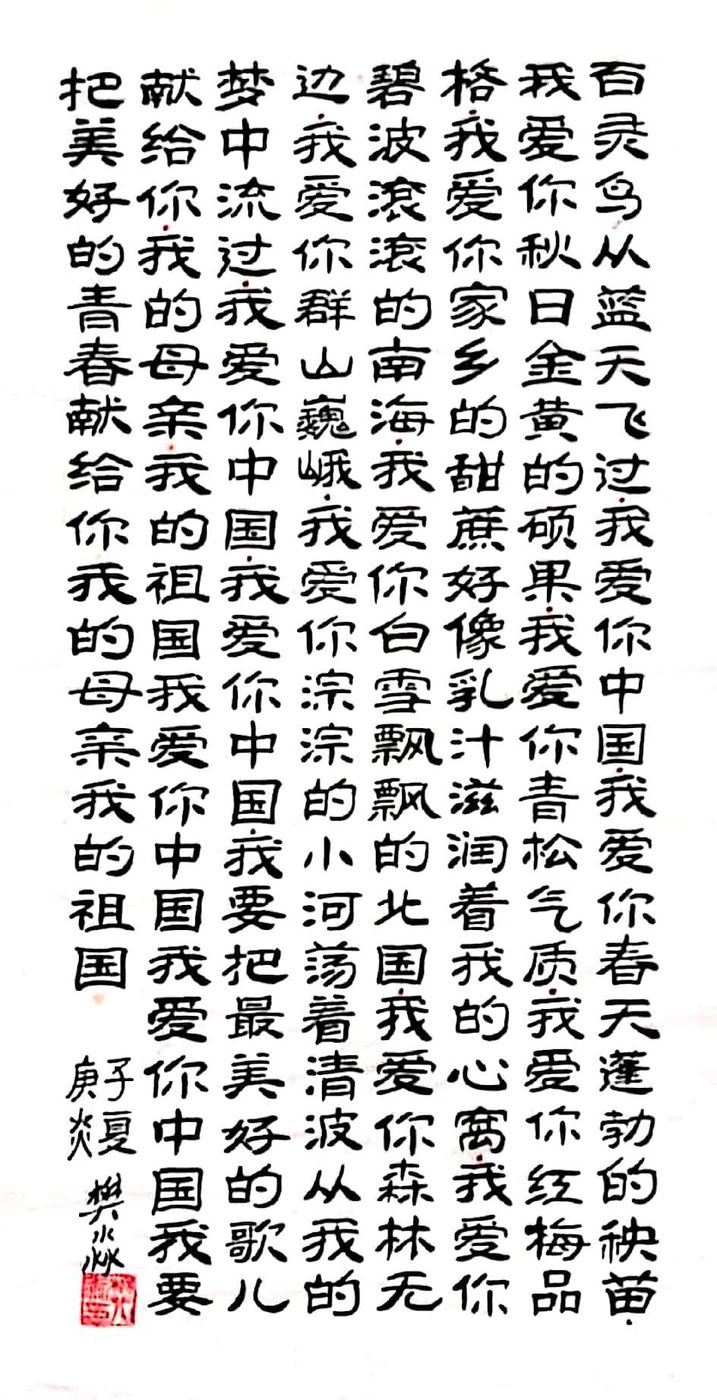 百灵鸟从蓝天飞过我爱你中国我爱你春天蓬勃的秧苗
我爱你秋日金黄的硕果我爱你青松气质我爱你红梅品
格我爱你家乡的甜蔗好像乳汁滋润着我的心窝我爱你
碧波滚滚的南海我爱你白雪飘飘的北国我爱你森林无
边我爱你群山巍峨我爱你淙淙的小河荡着清波从我的
梦中流过我爱你中国我爱你中国我要把最美好的歌儿
献给你我的母亲我的祖国我爱你中国我爱你中国我要
把美好的青春献给你我的母亲我的祖国
庚子
炎夏
樊淼